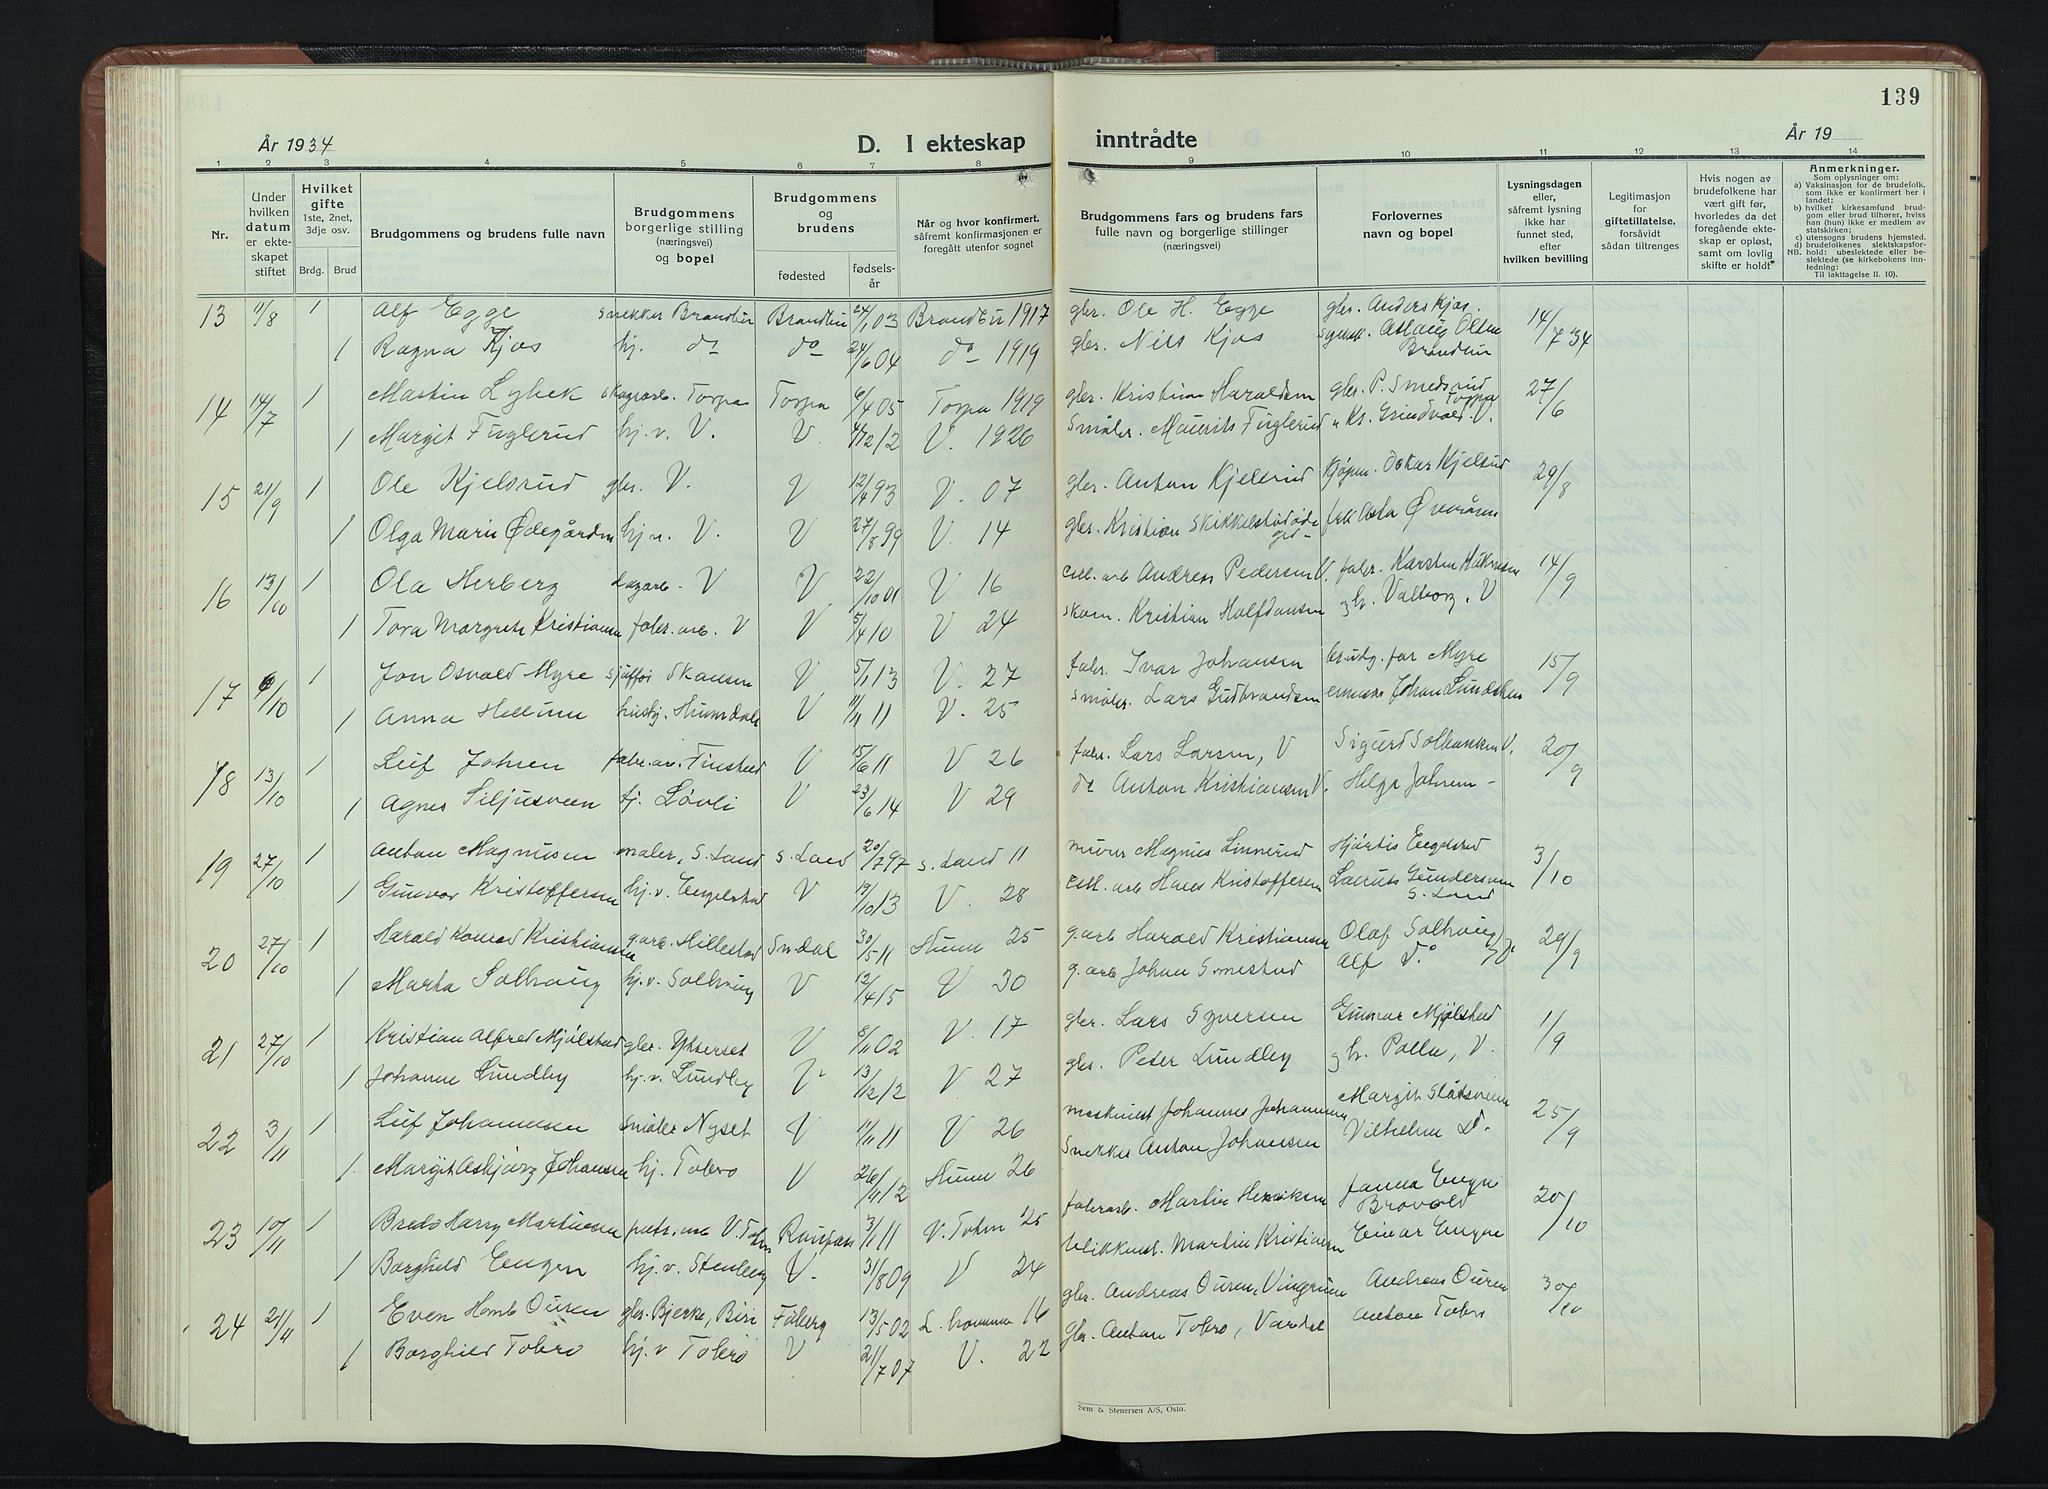 139
År 1934
D. I ekteskap
inntrådte
År 19
1 2 3 4 5 6 7 8 9 10 11 12 13 14
Nr.
Under hvilken datum er ekteskapet stiftet
Hvilket gifte 1ste, 2net, 3dje osv.
Brdg. Brud
Brudgommens og brudens fulle navn
Brudgommens borgerlige stilling (næringsvei) og bopel
Brudgommens og brudens
fødested
fødselsår
Når og hvor konfirmert, såfremt konfirmasjonen er foregått utenfor sognet
Brudgommens fars og brudens fars fulle navn og borgerlige stillinger (næringsvei)
Forlovernes navn og bopel
Lysningsdagen eller, såfremt lysning ikke har funnet sted, efter hvilken bevilling
Legitimasjon for giftetillatelse, forsåvidt sådan tiltrenges
Hvis nogen av brudefolkene har vært gift før, hvorledes da det foregående ekteskap er opløst, samt om lovlig skifte er holdt
Anmerkninger.
Som oplysninger om:
a) Vaksinasjon for de brudefolk, som ikke er konfirmert her i landet;
b) hvilket kirkesamfund brudgom eller brud tilhører, hviss han (hun) ikke er medlem av statskirken;
c) utensogns brudens hjemsted.
d) brudefolkenes slektskapsforhold: ubeslektede eller beslektede (se kirkebokens innledning:
NB. Til iakttagelse II. 10).
13 11/8 1 Alf Egge snekker Brandbu Brandbu 24/1 03 Brandbu 1917 gbr. Ole H. Egge gbr. Anders Kjos. 14/7 34
1 Ragna Kjos hj. do do 24/6 04 do 1919 gbr. Nils Kjos Aslaug Olsen Brandbu
14 14/7 1 Martin Lybek skogsarb. Torpa Torpa 6/4 05 Torpa 1919 gbr. Kristian Haraldsen gbr. P. Smedsrud Torpa 27/6
1 Margit Fuglerud hj. v. V. V. 4/12 12 V. 1926 småbr. Maurits Fuglerud " Kr. Grindvold V.
15 21/9 1 Ole Kjelsrud gbr. V. V 12/4 93 V. 07 gbr. Anton Kjelsrud kjøpm. Oskar Kjelsrud 29/8
1 Olga Marie Ødegården hj. v. V. V 27/8 99 V. 14 gbr. Kristian Skikkelstadødegd- frk Asta Øveråsen
16 13/10 1 Ola Herberg dagarb. V V 22/10 01 V 16 cell. arb Andreas Pedersen V. fabr. Karsten Håkensen 14/9
1 Tora Margrete Kristiansen fabr. arb. V V 5/4 10 V 24 skom. Kristian Halfdansen gbr. Valborg, V
17 6/10 1 Jon Osvald Myre sjåfør Skansen V 5/1 13 V. 27 fabr. Ivar Johansen brudg. far Myre 15/9
1 Anna Hellum hushj. Hunndalen V 11/11 11 V. 25 småbr. Lars Gudbrandsen Johan Lundsbakken
18 13/10 1 Leif Johnsen fabr. arb. Finstad V 15/6 11 V 26 fabr. Lars Larsen, V Sigurd Solbakken V. 20/9
1 Agnes Siljusveen hj. Løvli V 23/6 14 V 29 do Anton Kristiansen V. Helga Johnsen -
19 27/10 1 Anton Magnusen maler, S. Land S. Land 20/7 97 S. Land 11 murer Magnus Linnerud Hjørdis Engelstad 3/10
1 Gunvor Kristoffersen hj. v. Engelstad V 19/10 13 V. 28 cell. arb Hans Kristoffersen Laurits Gundersen S. Land
20 27/10 1 Harald Konrad Kristiansen g.arb. Hillestad Sn.dal 30/5 11 Hunn 25 g.arb Harald Kristiansen Olaf Solhaug 29/9
1 Marta Solhaug hj. v. Solhaug V 12/4 15 V 30 g.arb Johan Smestad Alf do
21 27/10 1 Kristian Alfred Mjølstad gbr. Ytterset V 8/11 02 V. 17 gbr. Lars Syversen Gunnar Mjølstad 1/9
1 Johanne Lundby hj. v. Lundby V 13/12 12 V 27 gbr. Peter Lundby gbr. Palle, V.
22 3/11 1 Leif Johannesen småbr Nyset V 11/11 11 V 26 maskinist Johannes Johannesen Margit Slåtsveen 25/9
1 Margit Asbjørg Johansen hj. Tobro V 26/4 12 Hunn 26 snekker Anton Johansen Vilhelm D.
23 10/11 1 Harry Martinsen V. Toten Raufoss 3/1 11 V. Toten 25 fabrarb. Martin Henriksen Janna Engen Brovold 20/10
1 Borghild Engen hj. v. Stenberg V. 31/8 09 V 24 blikkensl. Martin Kristiansen Einar Engen
24 24/11 1 Even Homb Ouren gbr. Bjerke, Biri Fåberg 13/5 02 L. hammer 16 gbr. Andreas Ouren, Vingrom Andreas Ouren 30/10
1 Borghild Tobro hj. v Tobro V 21/7 07 V. 22 Gbr. Anton Tobro, Vardal Anton Tobro
Sem & Stenersen A/S, Oslo.